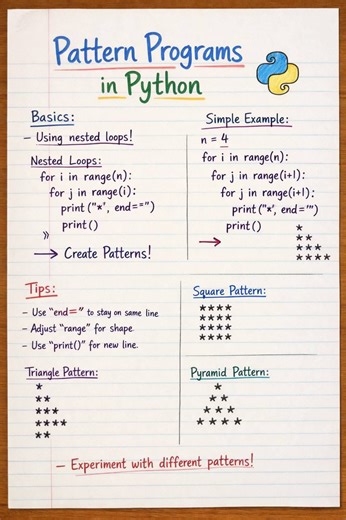 Pattern Programs
in Python
Basics:
- Using nested loops!
Nested Loops:
for i in range(n):
for j in range(i):
print ("*', end="")
print()
» → Create Patterns!
Simple Example:
n = 4
for i in range(n):
for j in range(i+1):
for j in range(i+1):
print("*', end='")
→ print()
*
**
***
****
Tips:
- Use "end=" to stay on same line
- Adjust "range" for shape.
- Use "print()" for new line.
Square Pattern:
****
****
****
****
Triangle Pattern:
*
**
***
****
**
Pyramid Pattern:
*
* *
* * *
* * * *
- Experiment with different patterns!